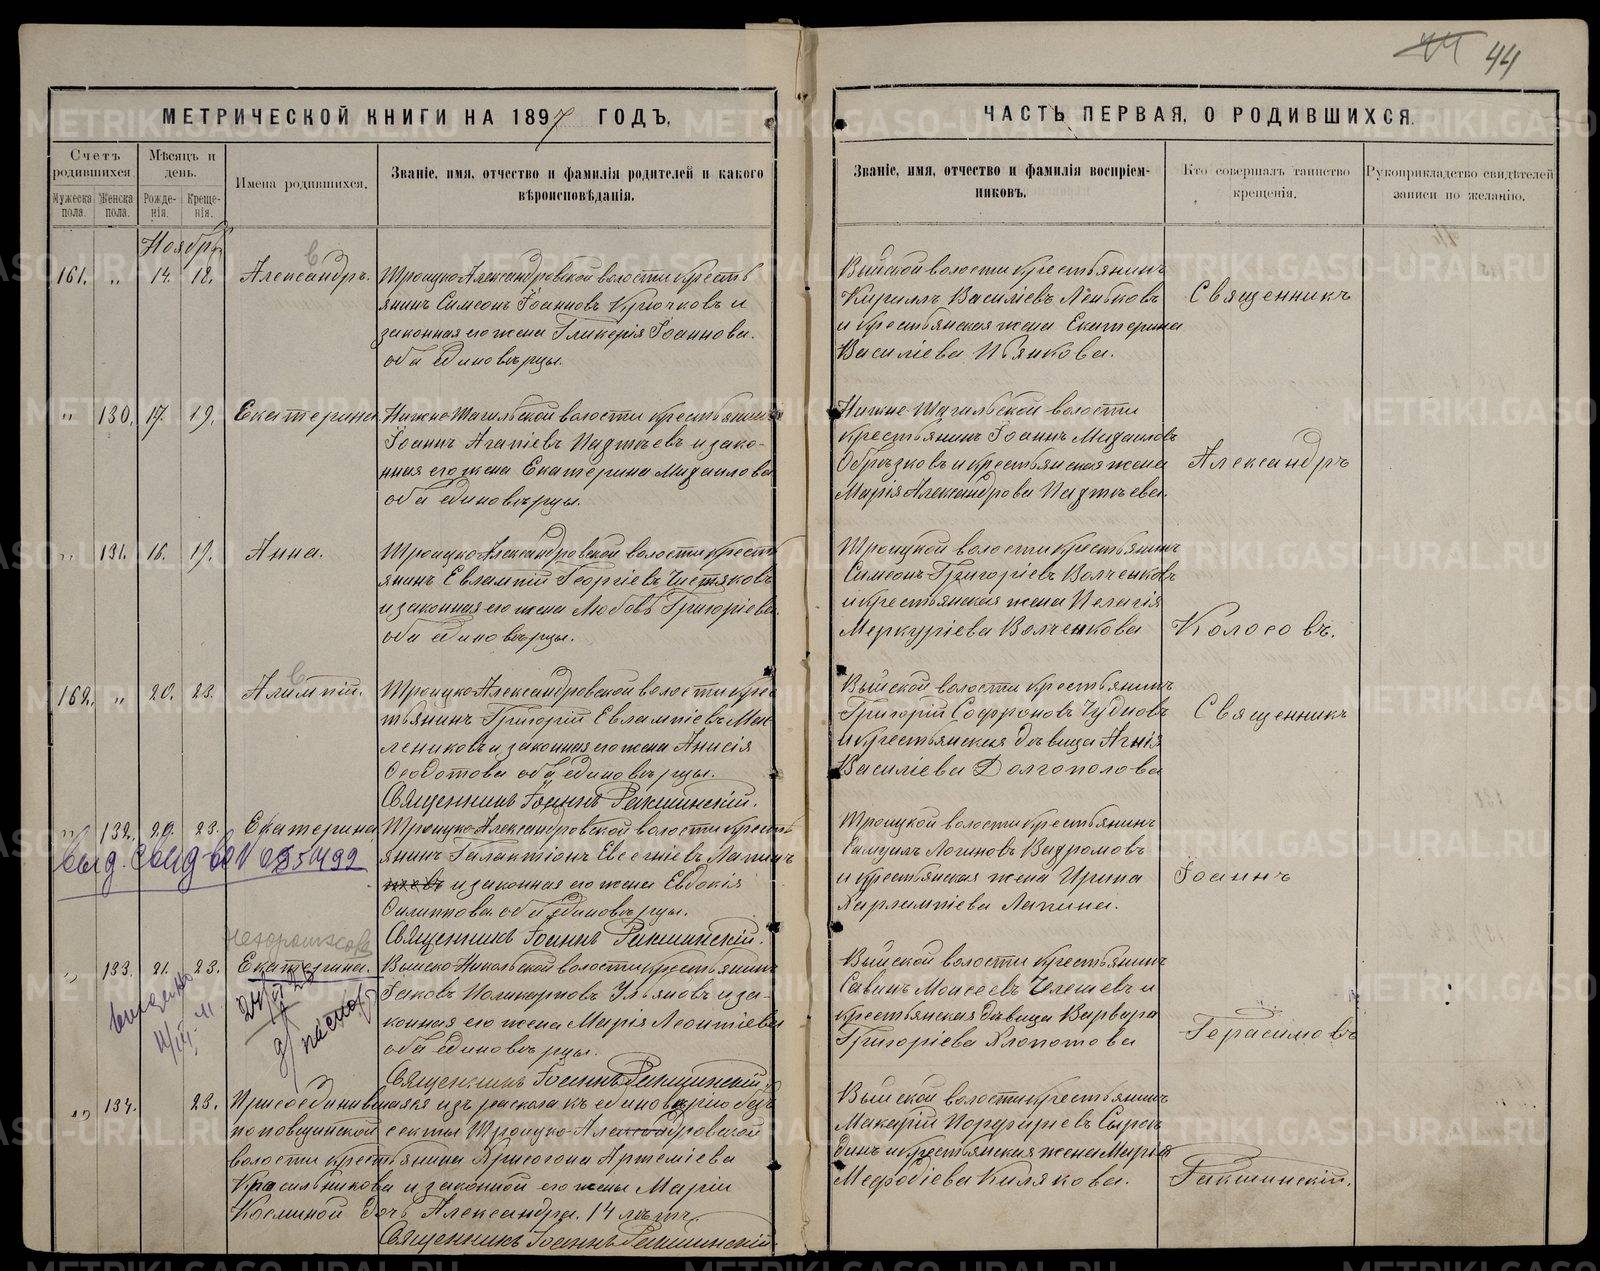 44 44
МЕТРИЧЕСКОЙ КНИГИ НА 1897 ГОДЪ,
ЧАСТЬ ПЕРВАЯ, О РОДИВШИХСЯ.
Счетъ родившихся
Мѣсяцъ и день.
Имена родившихся.
Званіе, имя, отчество и фамилія родителей и какого
вѣроисповѣданія.
Мужеска пола.
Женска пола.
Рожде-
нія.
Креще-
нія.
Званіе, имя, отчество и фамилія воспріем-
никовъ.
Кто совершалъ таинство
крещенія.
Рукоприкладство свидѣтелей
записи по желанію.
Ноябрь
161. " 14. 18. Александръ. Троицко-Александровской волости кресть
янинъ Симеонъ Іоанновъ Крючковъ и
законная его жена Гликерія Іоаннова.
оба единовѣрцы.
Выйской волости крестьянинъ
Кириллъ Василіевъ
и крестьянская жена Екатерина
Василіева
Священникъ
" 130. 17. 19. Екатерина. Нижне-Тагильской волости крестьянинъ
Іоаннъ Агапіевъ и зако-
нная его жена Екатерина Михаилова
оба единовѣрцы.
Нижне-Тагильской волости
крестьянинъ Іоаннъ Михаиловъ
Обрѣзковъ и крестьянская жена
Марія Александрова
Александръ
" 131. 16. 19. Анна. Троицко-Александровской волости кресть
янинъ Евлампій Георгіевъ Чистяковъ
и законная его жена Любовь Григоріева
оба единовѣрцы.
Троицкой волости крестьянинъ
Симеонъ Григоріевъ Волченковъ
и крестьянская жена Пелагія
Меркуріева Волченкова
Колосовъ.
162. " 20. 23. Алимпій. Троицко-Александровской волости крес
тьянинъ Григорій Евлампіевъ Мас
лениковъ и законная его жена Анисія
Ѳеодотова оба единовѣрцы.
Священникъ Іоаннъ Ракшинскій.
Выйской волости крестьянинъ
Григорій Софроновъ Чудновъ
и крестьянская дѣвица Агнія
Василіева Долгополова
Священникъ
" 132. 20. 23. Екатерина Троицко-Александровской волости кресть
янинъ Галактіонъ Евсегніевъ Лапинъ
и законная его жена Евдокія
Филиппова оба единовѣрцы.
Священникъ Іоаннъ Ракшинскій.
выд. свид-во N 0354492
Троицкой волости крестьянинъ
Самуилъ Логиновъ Вахромовъ
и крестьянская жена Ирина
Харлампіева Лапина.
Іоаннъ
Нехорошкова
" 133. 21. 23. Екатерина. Выйско-Никольской волости крестьянинъ
Іаковъ Поликарповъ Ульяновъ и за-
конная его жена Марія Леонтіева
оба единовѣрцы.
Священникъ Іоаннъ Ракшинскій.
выдана
д/ паспорта
Выйской волости крестьянинъ
Савинъ Моисеевъ Челешевъ и
крестьянская дѣвица Варвара
Григоріева Хлопотова
Герасимовъ
" 134. 23. Присоединившаяся изъ раскола къ единовѣрію безъ
поповщинской секты Троицко-Александровской
волости крестьянина Хрисогона Артеміева
Красильникова и законной его жены Маріи
Косминой дочь Александра. 14 лѣтъ.
Священникъ Іоаннъ Ракшинскій.
Выйской волости крестьянинъ
Макарій Порфиріевъ Сыроѣ
динъ и крестьянская жена Марія
Меѳодіева Килякова.
Ракшинскій.
METRIKI.GASO-URAL.RU